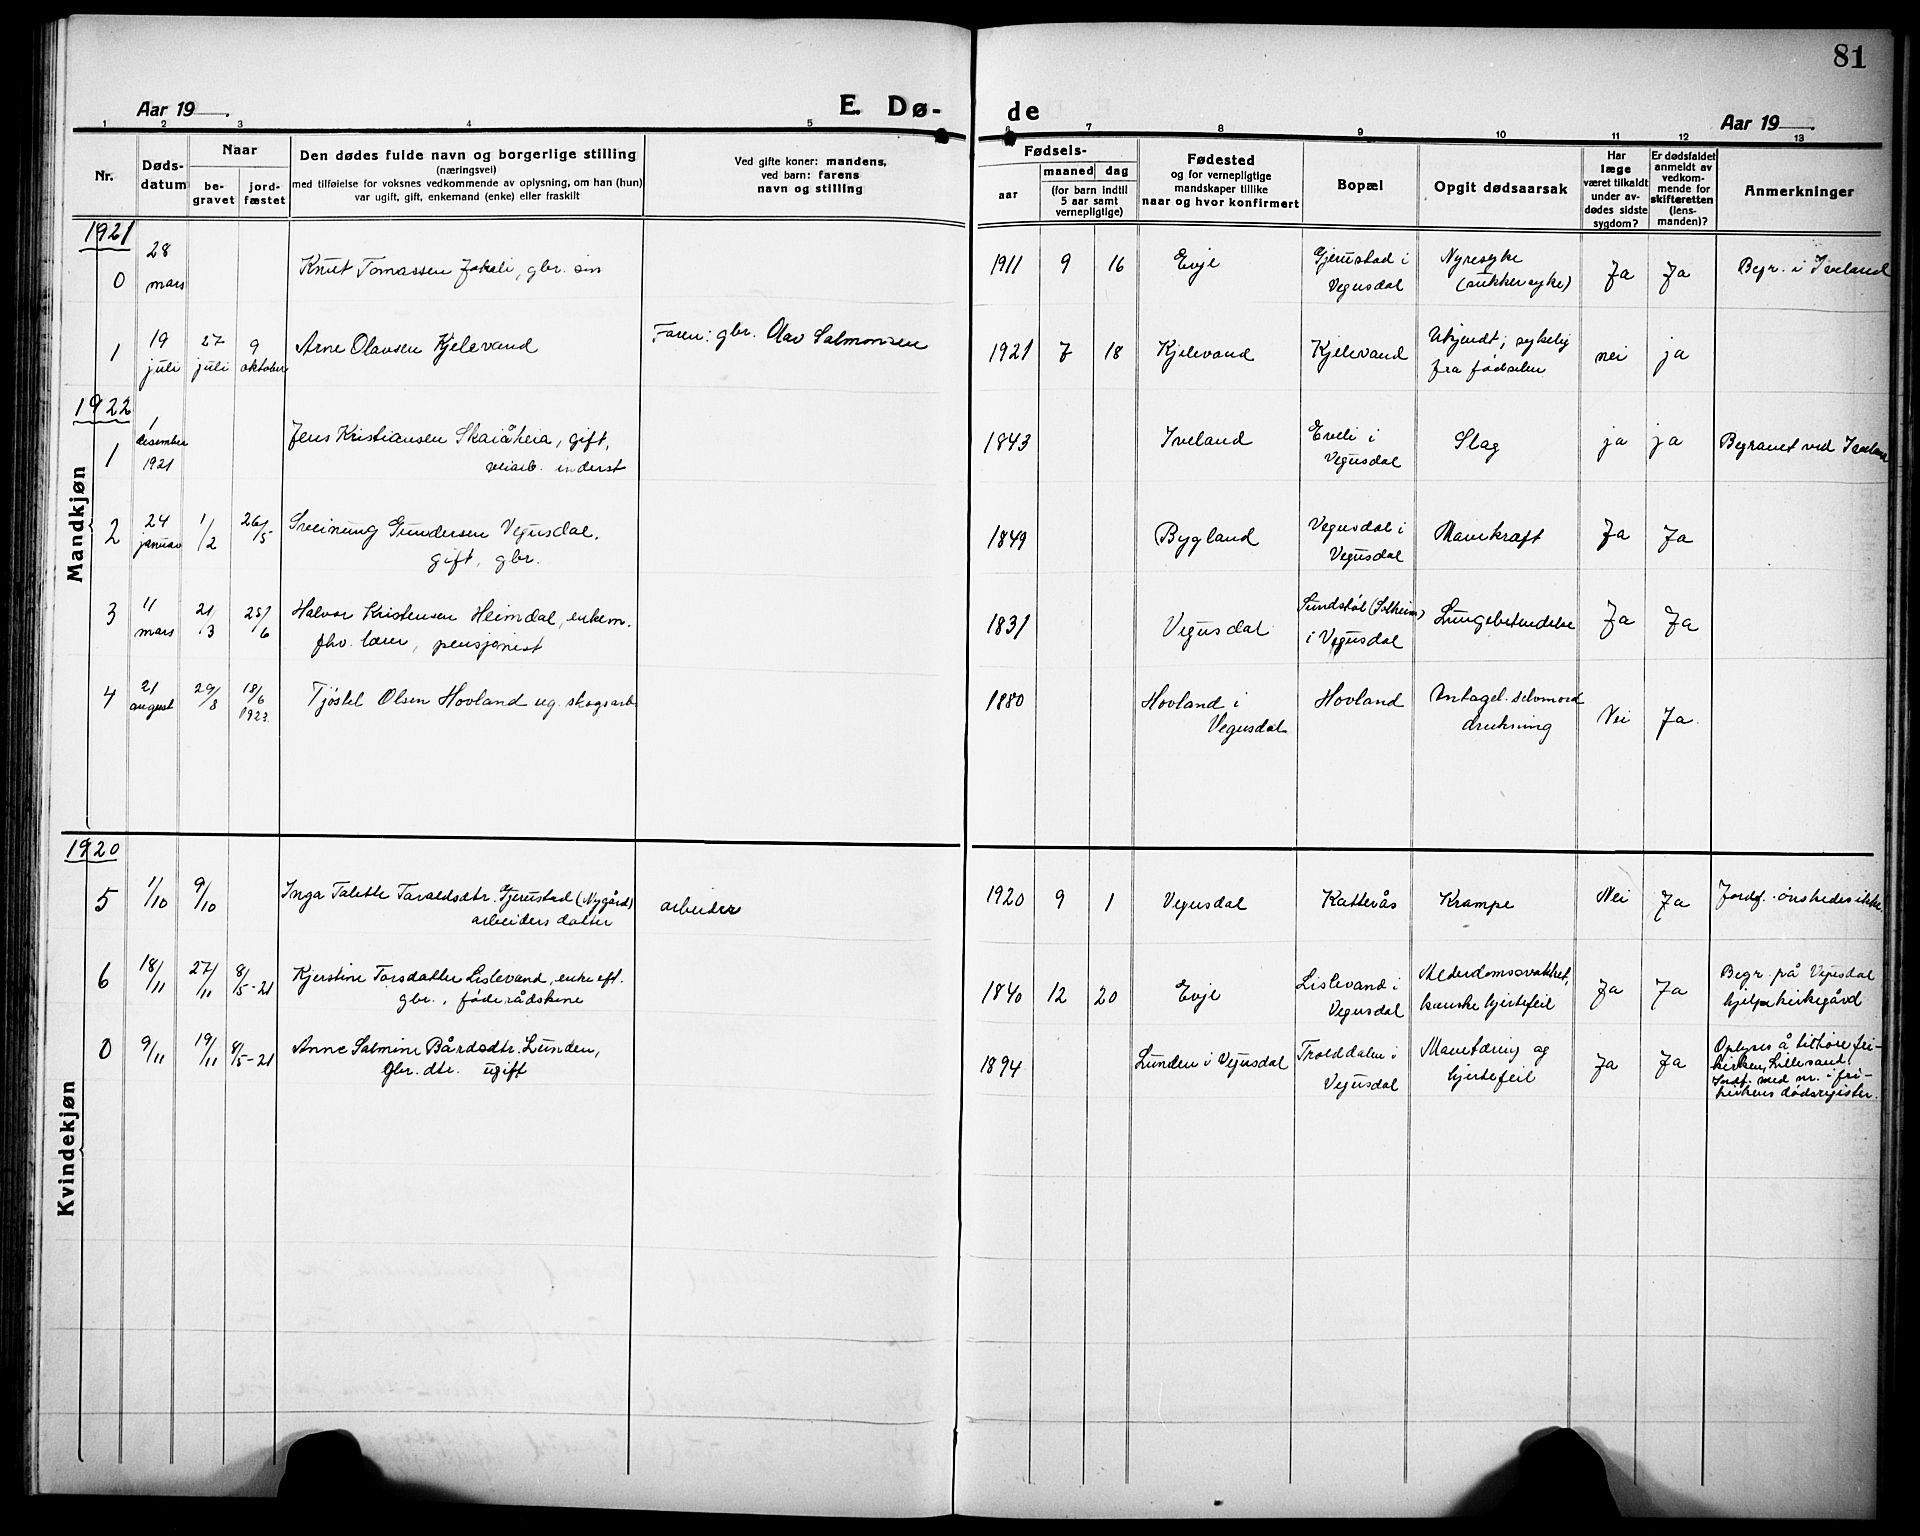 81
Aar 19
E. Dø-
de
Aar 19
1 2 3 4 5 6 7 8 9 10 11 12 13
Nr.
Døds-
datum
Naar
be-
gravet
jord-
fæstet
Den dødes fulde navn og borgerlige stilling
(næringsvei)
med tilføielse for voksnes vedkommende av oplysning, om han (hun)
var ugift, gift, enkemand (enke) eller fraskilt
Ved gifte koner: mandens,
ved barn: farens
navn og stilling
Fødsels-
aar
maaned
dag
(for barn indtil
5 aar samt
vernepligtige)
Fødested
og for vernepligtige
mandskaper tillike
naar og hvor konfirmert
Bopæl
Opgit dødsaarsak
Har
læge
været tilkaldt
under av-
dødes sidste
sygdom?
Er dødsfaldet
anmeldt av
vedkom-
mende for
skifteretten
(lens-
manden)?
Anmerkninger
Mandkjøn
1921
0 28 mars Knut Tomassen Jokeli, gbr. søn 1911 9 16 Evje Gjerustad i Vegusdal Nyresyke (sukkersyke) Ja Ja Begr. i Iveland
1 19 juli 27 juli 9 oktober Arne Olavsen Kjelevand Faren: gbr. Olav Salmonsen 1921 7 18 Kjelevand Kjelevand Ukjendt; sykelig fra fødselen nei ja
1922
1 1 desember 1921 Jens Kristiansen Skaiåheia, gift, veiarb. inderst 1843 Iveland Eveli i Vegusdal Slag ja ja Begravet ved Iveland
2 24 januar 1/2 26/5 Sveinung Gundersen Vegusdal, gift, gbr. 1849 Bygland Vegusdal i Vegusdal Mavekræft Ja Ja
3 11 mars 21/3 25/6 Halvor Kristensen Heimdal, enkem. fhv. lærer, pensjonist 1831 Vegusdal Sundstøl (Solheim) i Vegusdal Lungebetændelse Ja Ja
4 21 august 29/8 18/6 1923 Tjøstel Olsen Hovland ug. skogsarb. 1880 Hovland i Vegusdal Hovland Antagel. selvmord drukning Nei Ja.
Kvindekjøn
1920
5 1/10 9/10 Inga Talette Taraldsdtr. Gjerustad (Nygård) arbeiders datter arbeider 1920 9 1 Vegusdal Katterås Krampe Nei Ja Jordf. ønskedes ikke.
6 18/11 27/11 8/5-21 Kjerstine Torsdatter Lislevand, enke eft. gbr., føderådskone 1840 12 20 Evje Lislevand i Vegusdal Alderdomssvakhet, kanske hjertefeil Ja Ja Begr. på Vegusdal hjelpekirkegård
0 9/11 19/11 8/5-21 Anne Salmine Bårdsdtr. Lunden, Gbr. dtr. ugift 1894 Lunden i Vegusdal Trolddalen i Vegusdal Mavetæring og hjertefeil Ja Ja Oplyses å tilhøre fri-
kirken, Lillesand.
Indf. med nr. i fri-
kirkens dødsregister.